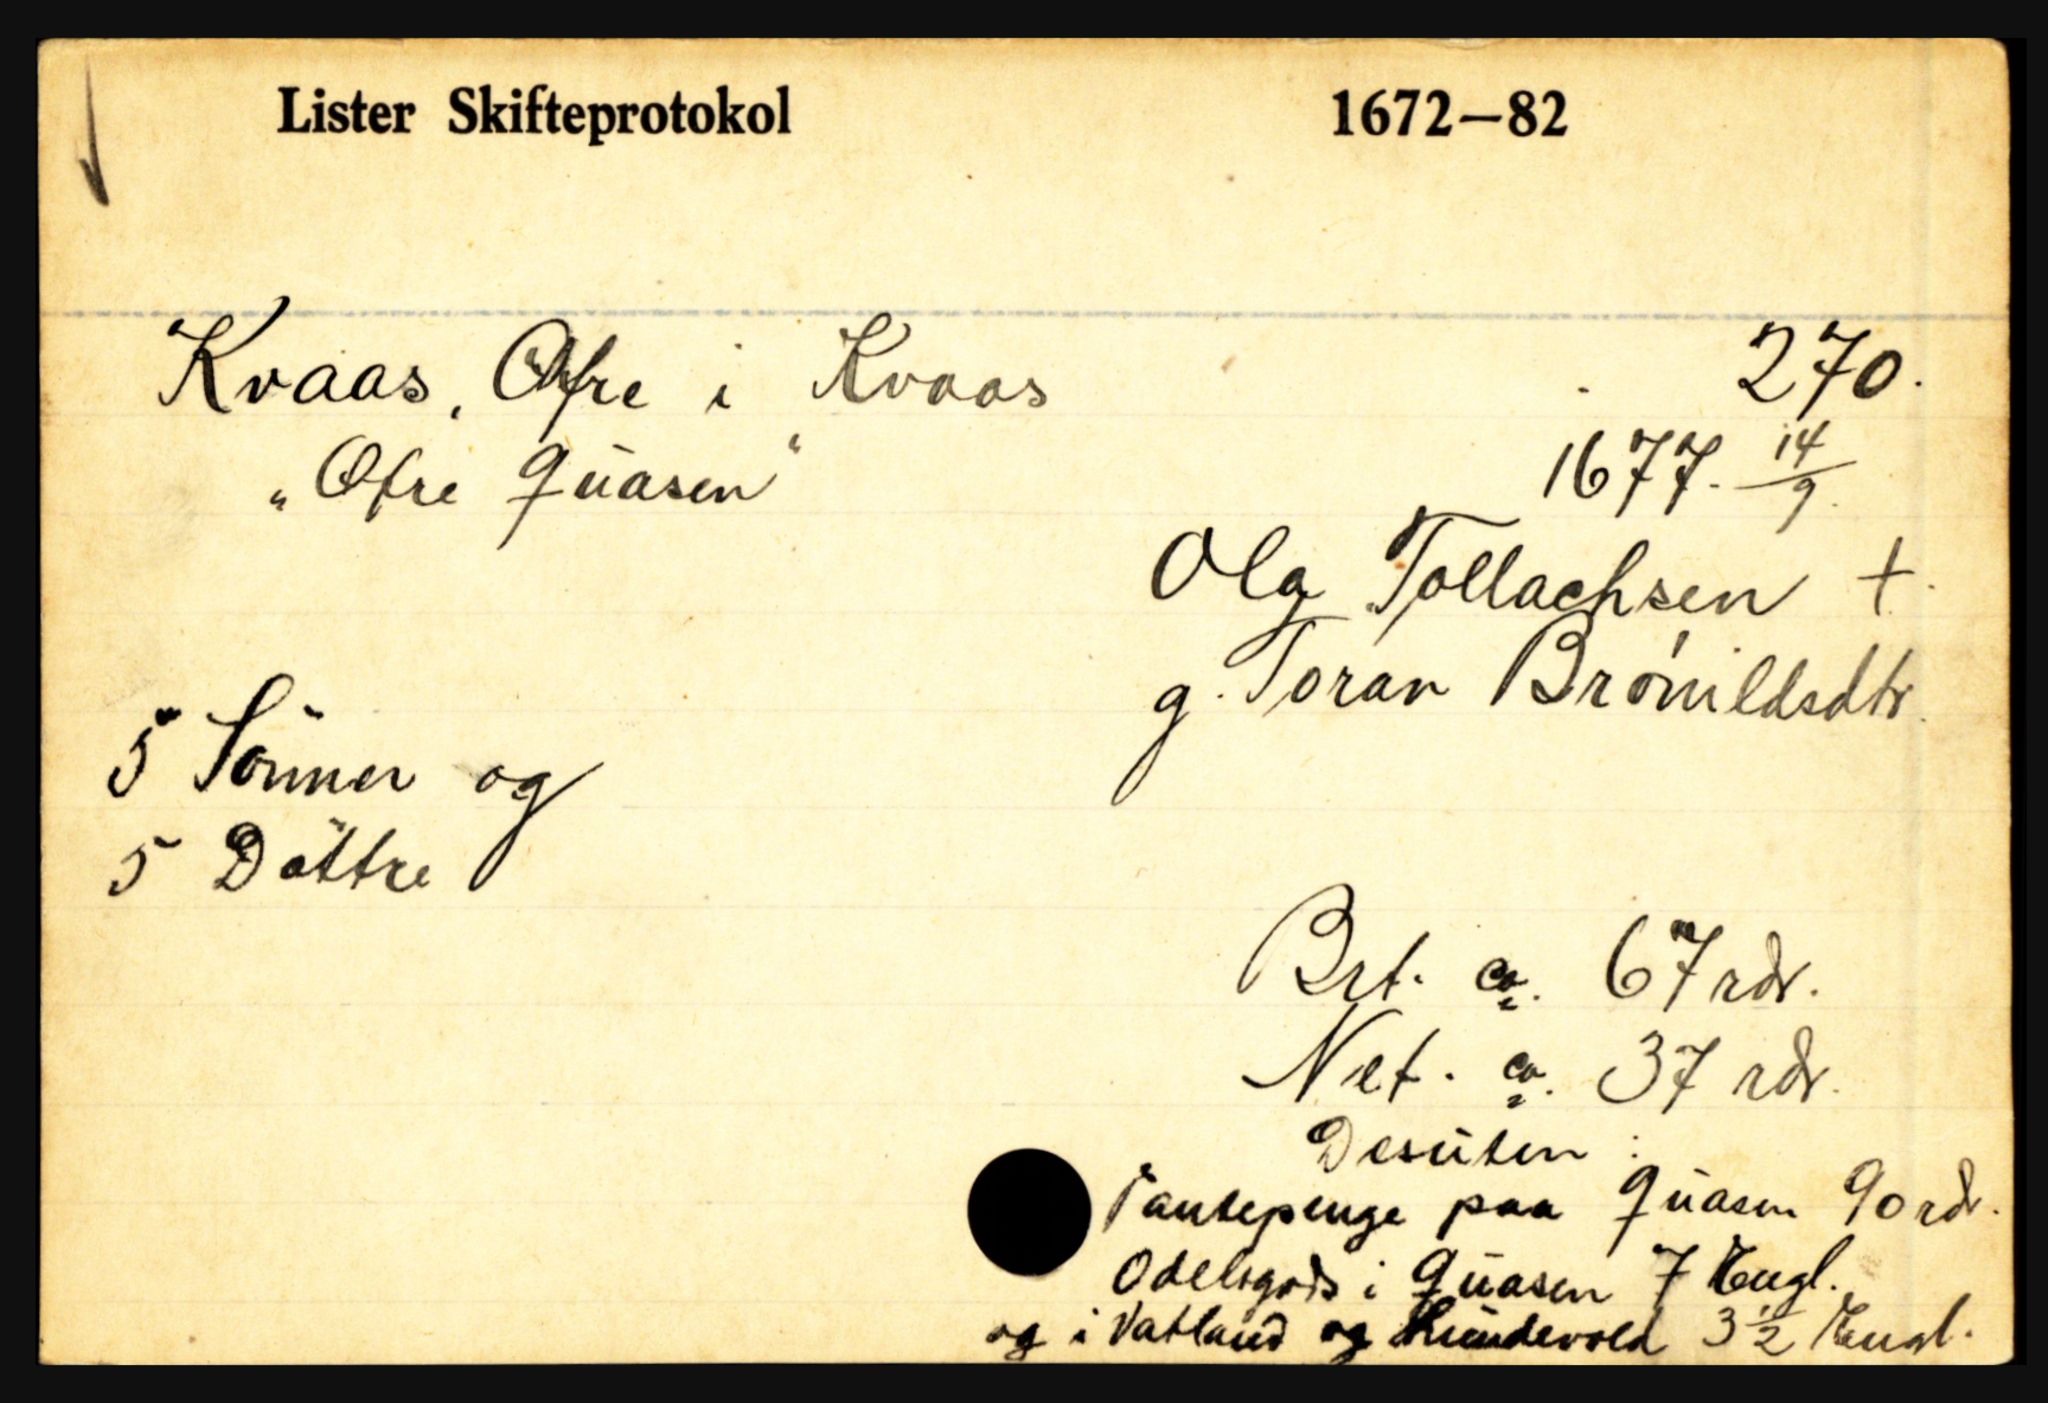 Lister Skifteprotokol 1672–82
Kvaas, Øfre i Kvaas 270.
„Øfre Quasen“ 1677. 14/9.
Ola Tollachsen †.
g. Toran Brönildsdtr.
5 Sönner og
5 Döttre
Brt. ca. 67 rdr.
Net. ca. 37 rdr.
Desuten :
Pantepenge paa Quasen 90 rdr.
Odelsgods i Quasen 7 Engl.
og i Vatland og Lundevold 3 ½ Engl.